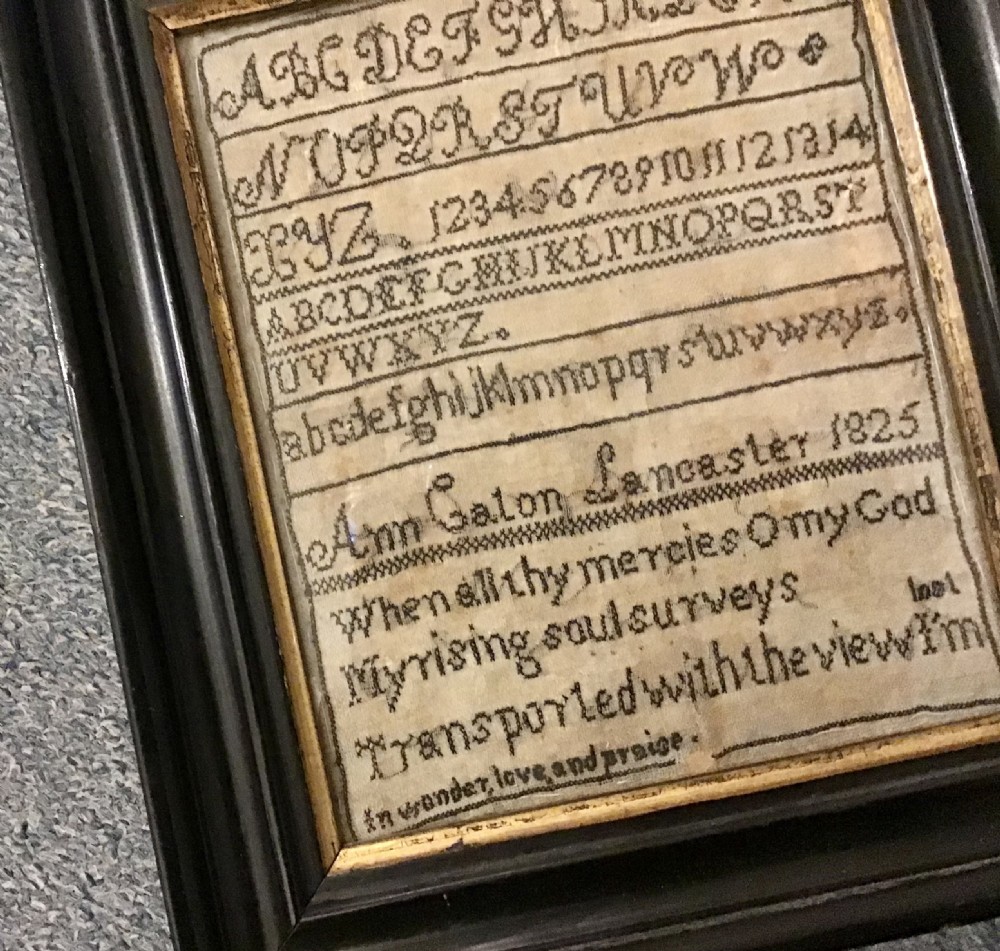 ABCDEFGHIKLM
NOPQRSTUVW
XYZ. 1234567891011121314
ABCDEFGHIJKLMNOPQRST
UVWXYZ.
abcdefghijklmnopqrstuvwxyz.
Ann Caton Lancaster 1825
When all thy mercies O my God
My rising soul surveys
lost
Transported with the view I'm
in wonder, love, and praise.